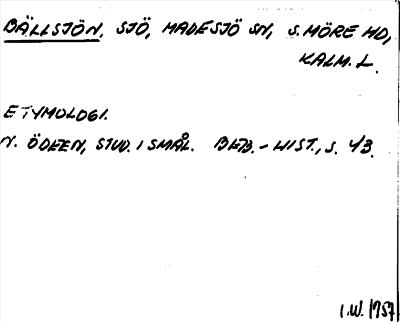 BÄLLSJÖN, SJÖ, MADESJÖ SN, S. MÖRE HD,
KALM. L.
ETYMOLOGI.
N. ÖDEEN, STUD. I SMÅL. BEB.-HIST., S. 43.
I.W. 1957